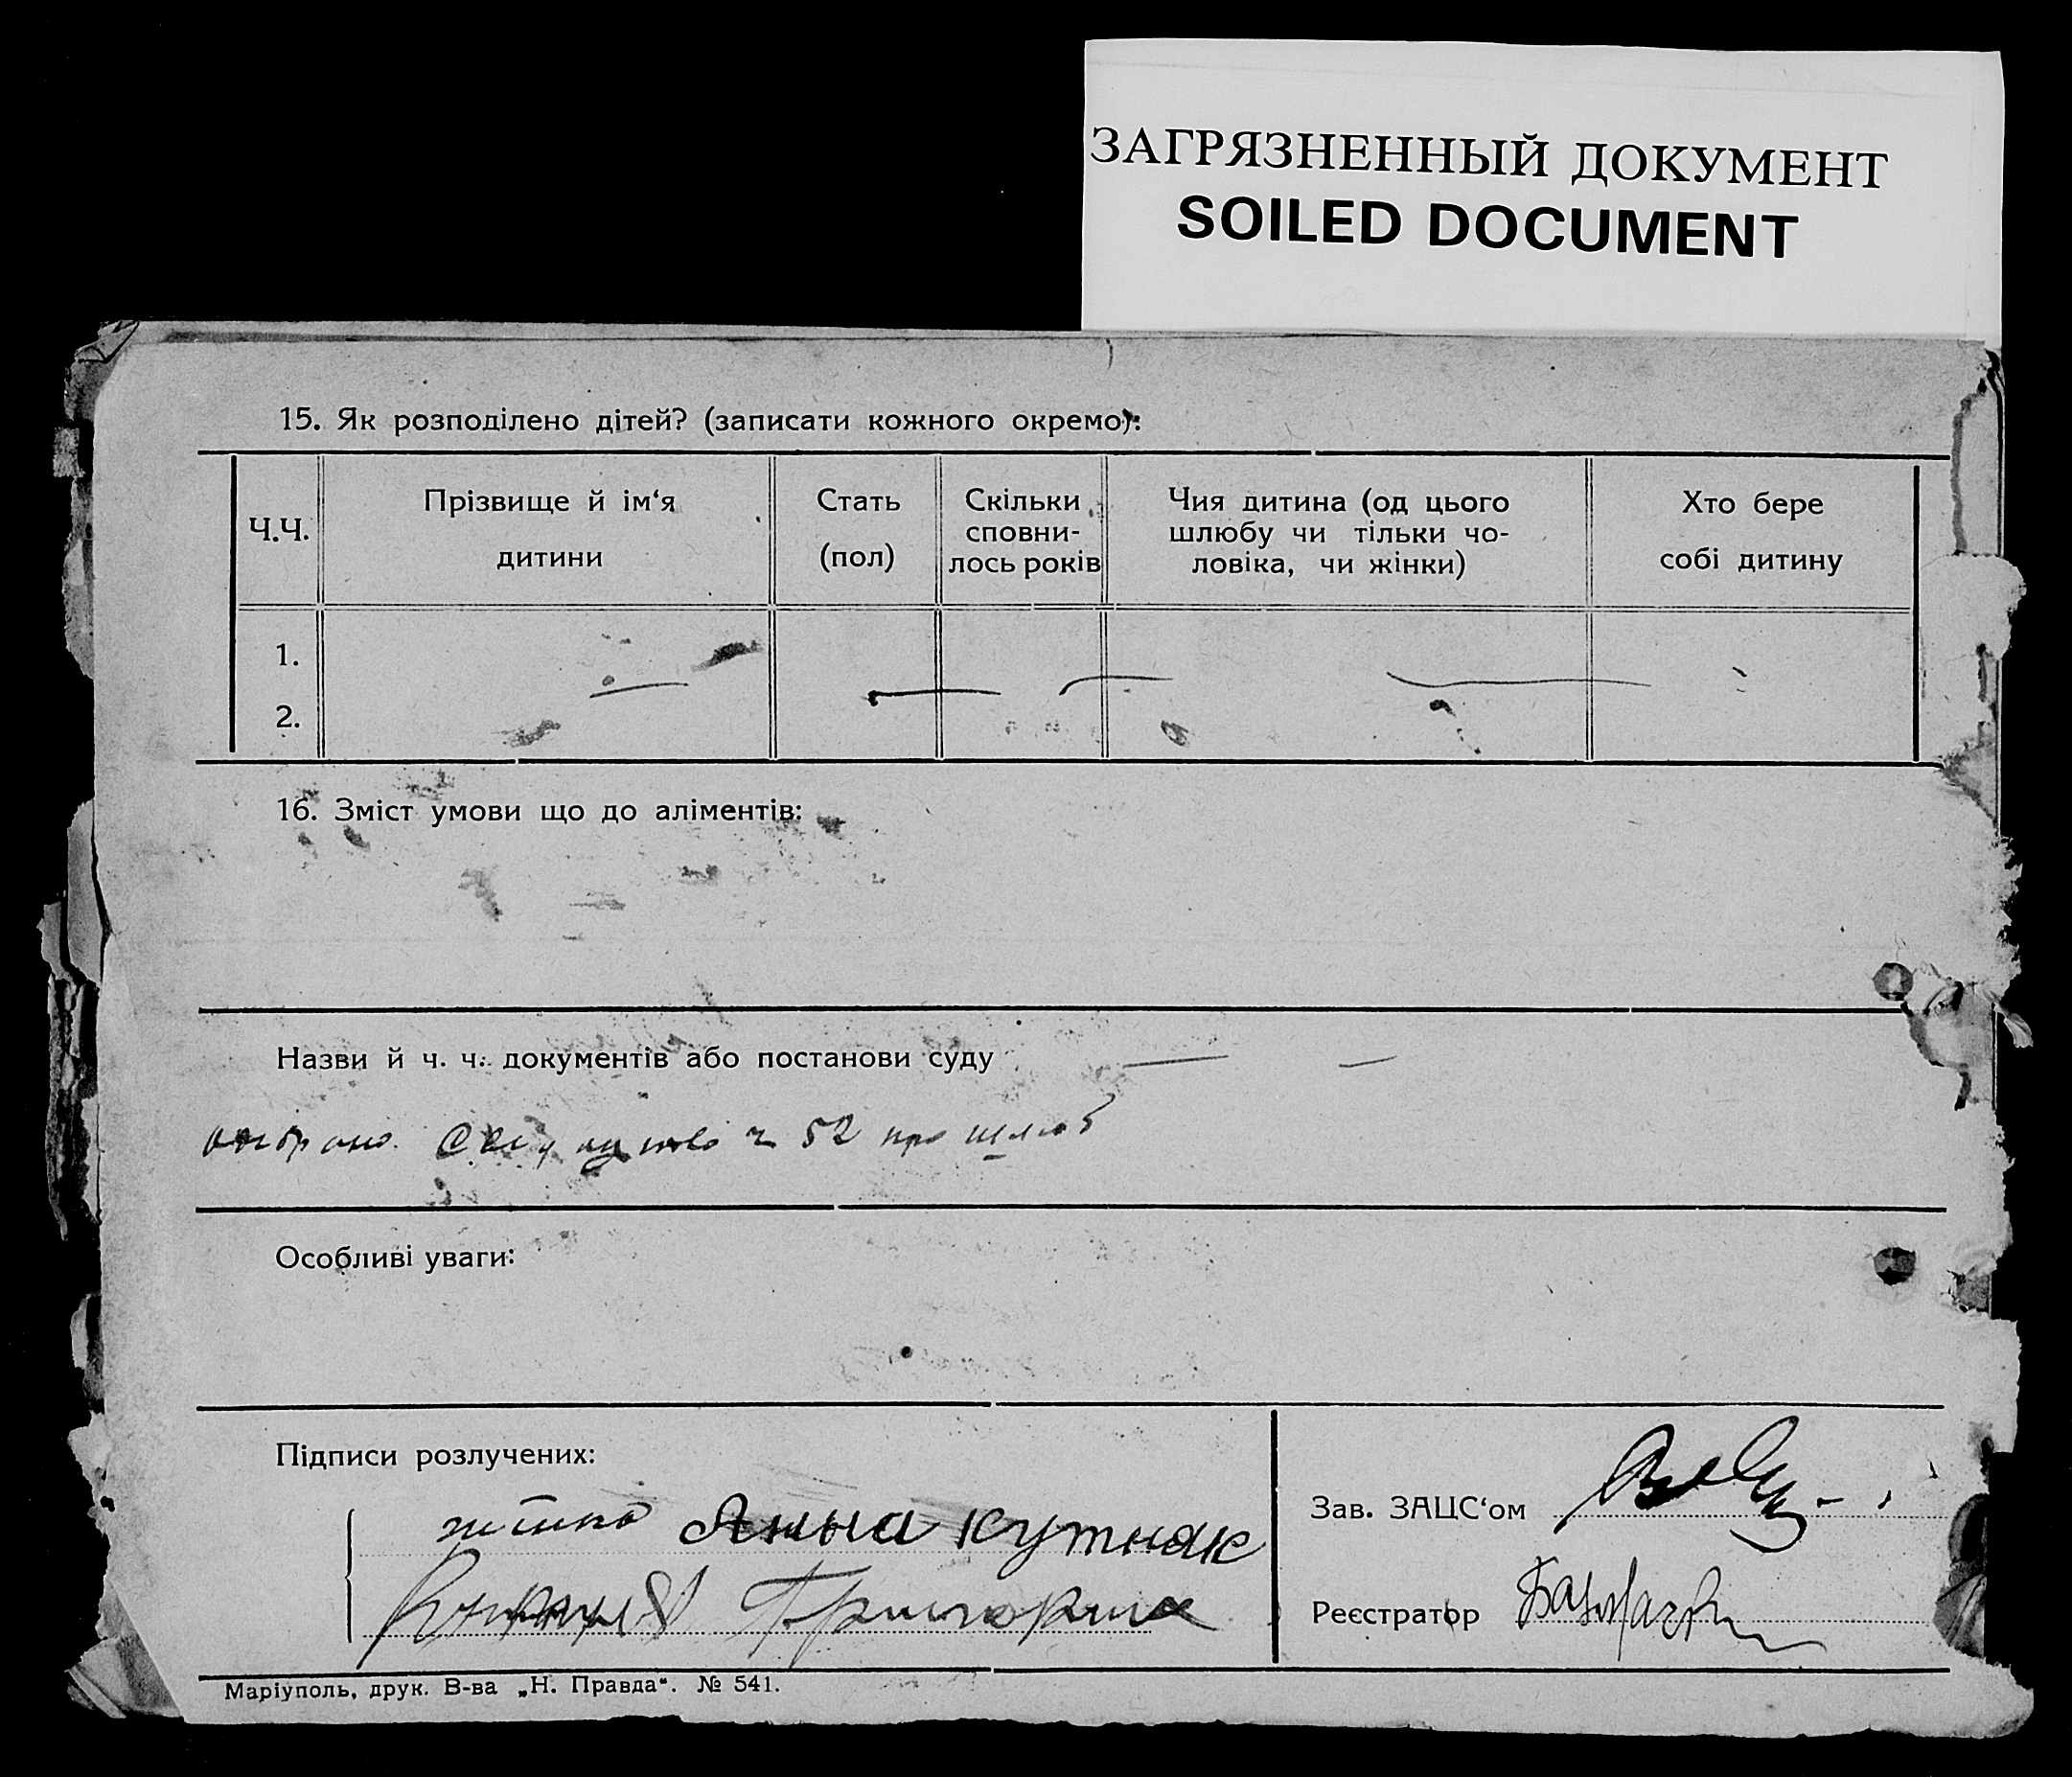 ЗАГРЯЗНЕННЫЙ ДОКУМЕНТ
SOILED DOCUMENT
15. Як розподілено дітей? (записати кожного окремо):
Ч.Ч.
Прізвище й ім‘я
дитини
Стать
(пол)
Скільки
сповни-
лось років
Чия дитина (од цього
шлюбу чи тільки чо-
ловіка, чи жінки)
Хто бере
собі дитину
1.
2.
16. Зміст умови що до аліментів:
Назви й ч. ч. документів або постанови суду — —
52 про шлюб
Особливі уваги:
Підписи розлучених:
жінка Анна Кутняк
Григорий
Зав. ЗАЦС‘ом
Реєстратор
Маріуполь, друк. В-ва „Н. Правда“. № 541.